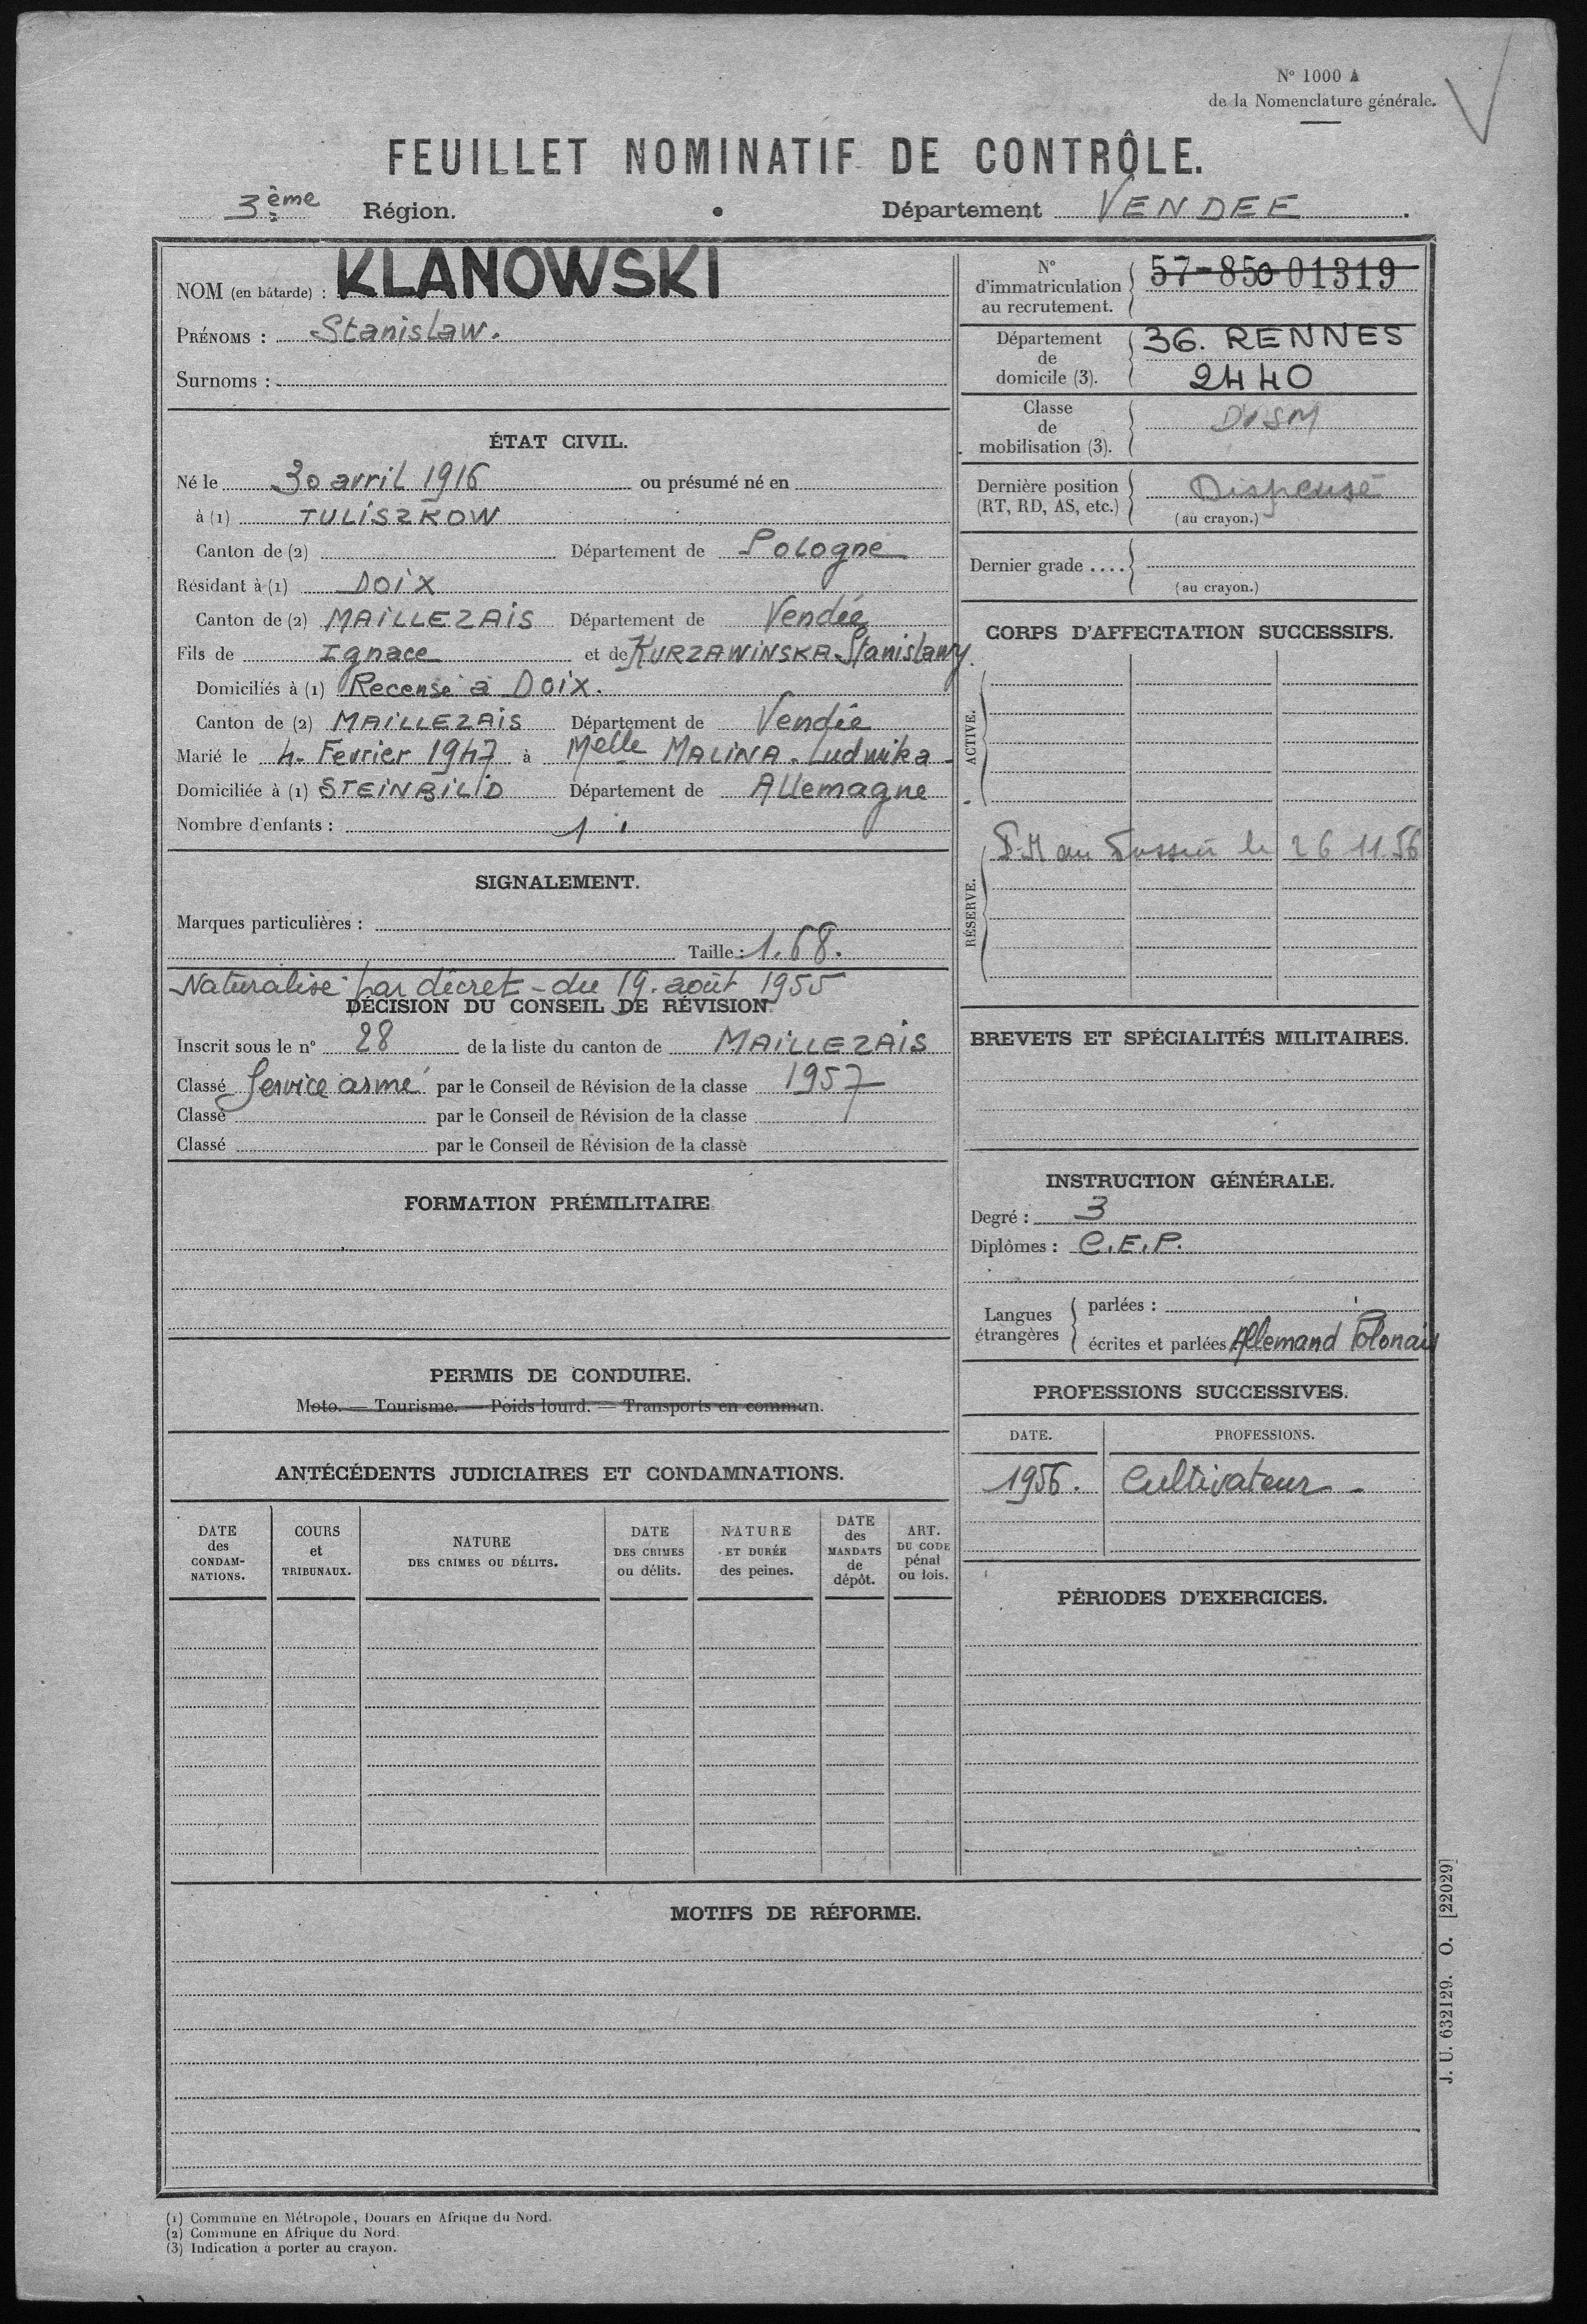 N° 1000 A
de la Nomenclature générale.
FEUILLET NOMINATIF DE CONTRÔLE.
3ème Région. Département VENDEE.
NOM (en bâtarde) : KLANOWSKI
PRÉNOMS : Stanislaw.
Surnoms :
ÉTAT CIVIL.
Né le 30 avril 1916 ou présumé né en
à (1) TULISZKOW
Canton de (2) Département de Pologne
Résidant à (1) DOIX
Canton de (2) MAILLEZAIS Département de Vendée
Fils de Ignace et de KURZAWINSKA Stanislawy.
Domiciliés à (1) Recensé à DOIX.
Canton de (2) MAILLEZAIS Département de Vendée
Marié le 4. Fevrier 1947 à Melle MALINA. Ludwika
Domiciliée à (1) STEINBILID Département de Allemagne
Nombre d'enfants : 1
SIGNALEMENT.
Marques particulières :
Taille : 1.68.
Naturalisé par décret du 19. août 1955
DÉCISION DU CONSEIL DE RÉVISION
Inscrit sous le n° 28 de la liste du canton de MAILLEZAIS
Classé Service armé par le Conseil de Révision de la classe 1957
Classé par le Conseil de Révision de la classe
Classé par le Conseil de Révision de la classe
FORMATION PRÉMILITAIRE
PERMIS DE CONDUIRE.
Moto. — Tourisme. — Poids lourd. — Transports en commun.
ANTÉCÉDENTS JUDICIAIRES ET CONDAMNATIONS.
DATE des CONDAMNATIONS.
COURS et TRIBUNAUX.
NATURE DES CRIMES OU DÉLITS.
DATE DES CRIMES ou délits.
NATURE ET DURÉE des peines.
DATE des MANDATS de dépôt.
ART. DU CODE pénal ou lois.
N° d'immatriculation au recrutement. 57-850-01319
Département de domicile (3). 36. RENNES
2440
Classe de mobilisation (3). DISM
Dernière position (RT, RD, AS, etc.) Dispensé
(au crayon.)
Dernier grade ....
(au crayon.)
CORPS D'AFFECTATION SUCCESSIFS.
ACTIVE.
RÉSERVE.
au le 26 11 56
BREVETS ET SPÉCIALITÉS MILITAIRES.
INSTRUCTION GÉNÉRALE.
Degré : 3
Diplômes : C.E.P.
Langues étrangères
parlées :
écrites et parlées Allemand Polonais
PROFESSIONS SUCCESSIVES.
DATE. PROFESSIONS.
1956. Cultivateur
PÉRIODES D'EXERCICES.
MOTIFS DE RÉFORME.
J. U. 632129. O. [22029]
(1) Commune en Métropole, Douars en Afrique du Nord.
(2) Commune en Afrique du Nord.
(3) Indication à porter au crayon.